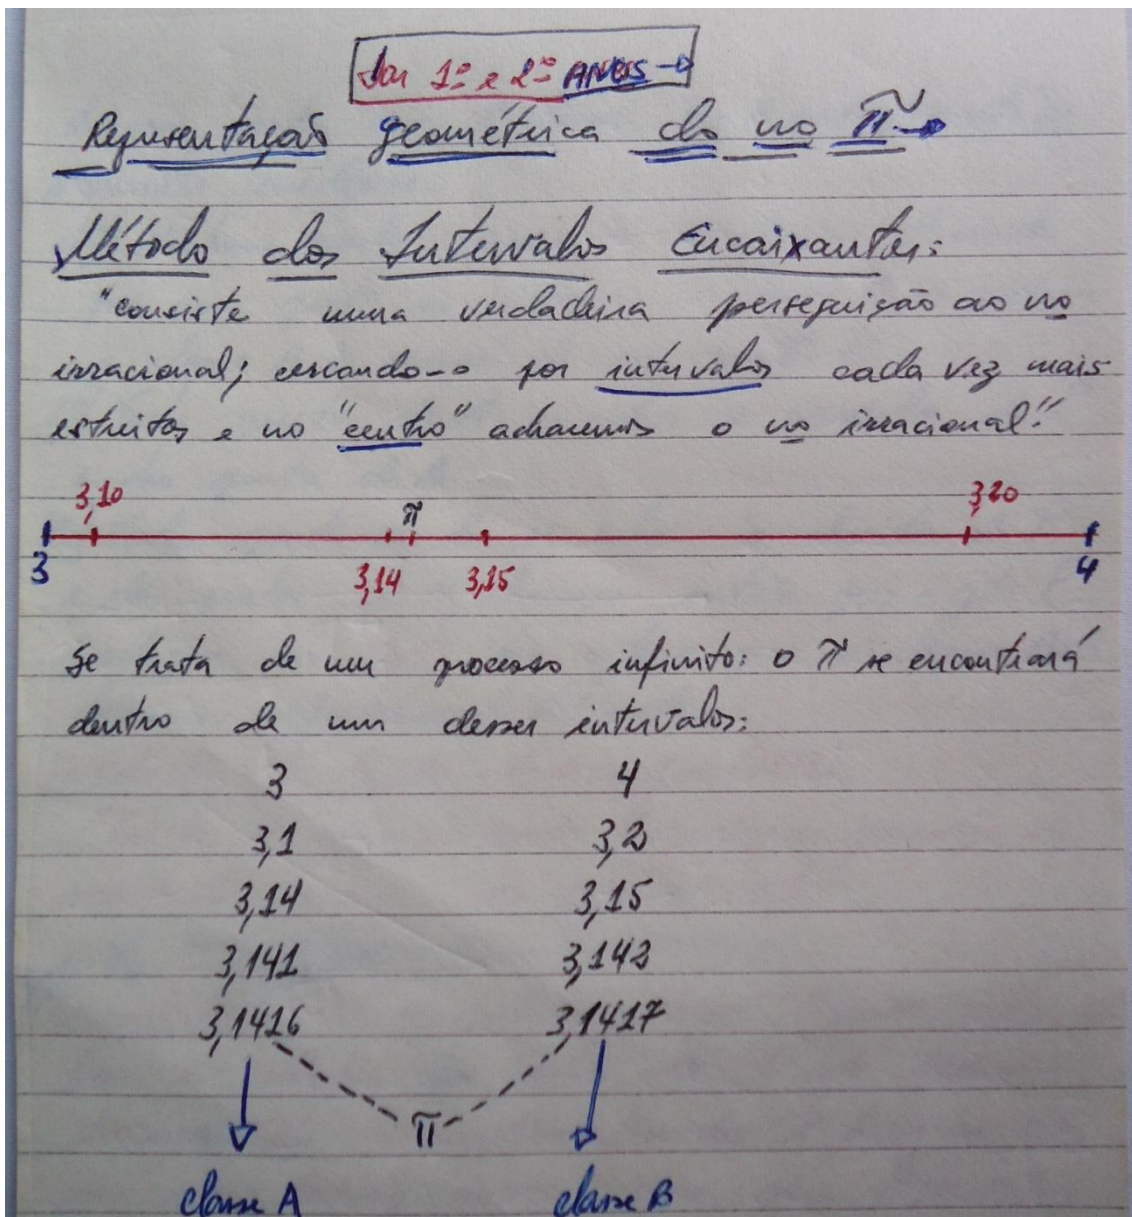 1º e 2º ANOS
Representação geométrica do nº π
Método dos Intervalos Encaixantes:
"consiste numa verdadeira perseguição ao nº
irracional; cercando-o por intervalos cada vez mais
estreitos e no "centro" acharemos o nº irracional."
3,10 π 3,20
3 3,14 3,15 4
Se trata de um processo infinito: o π se encontrará
dentro de um desses intervalos:
3 4
3,1 3,2
3,14 3,15
3,141 3,142
3,1416 3,1417
π
classe A classe B